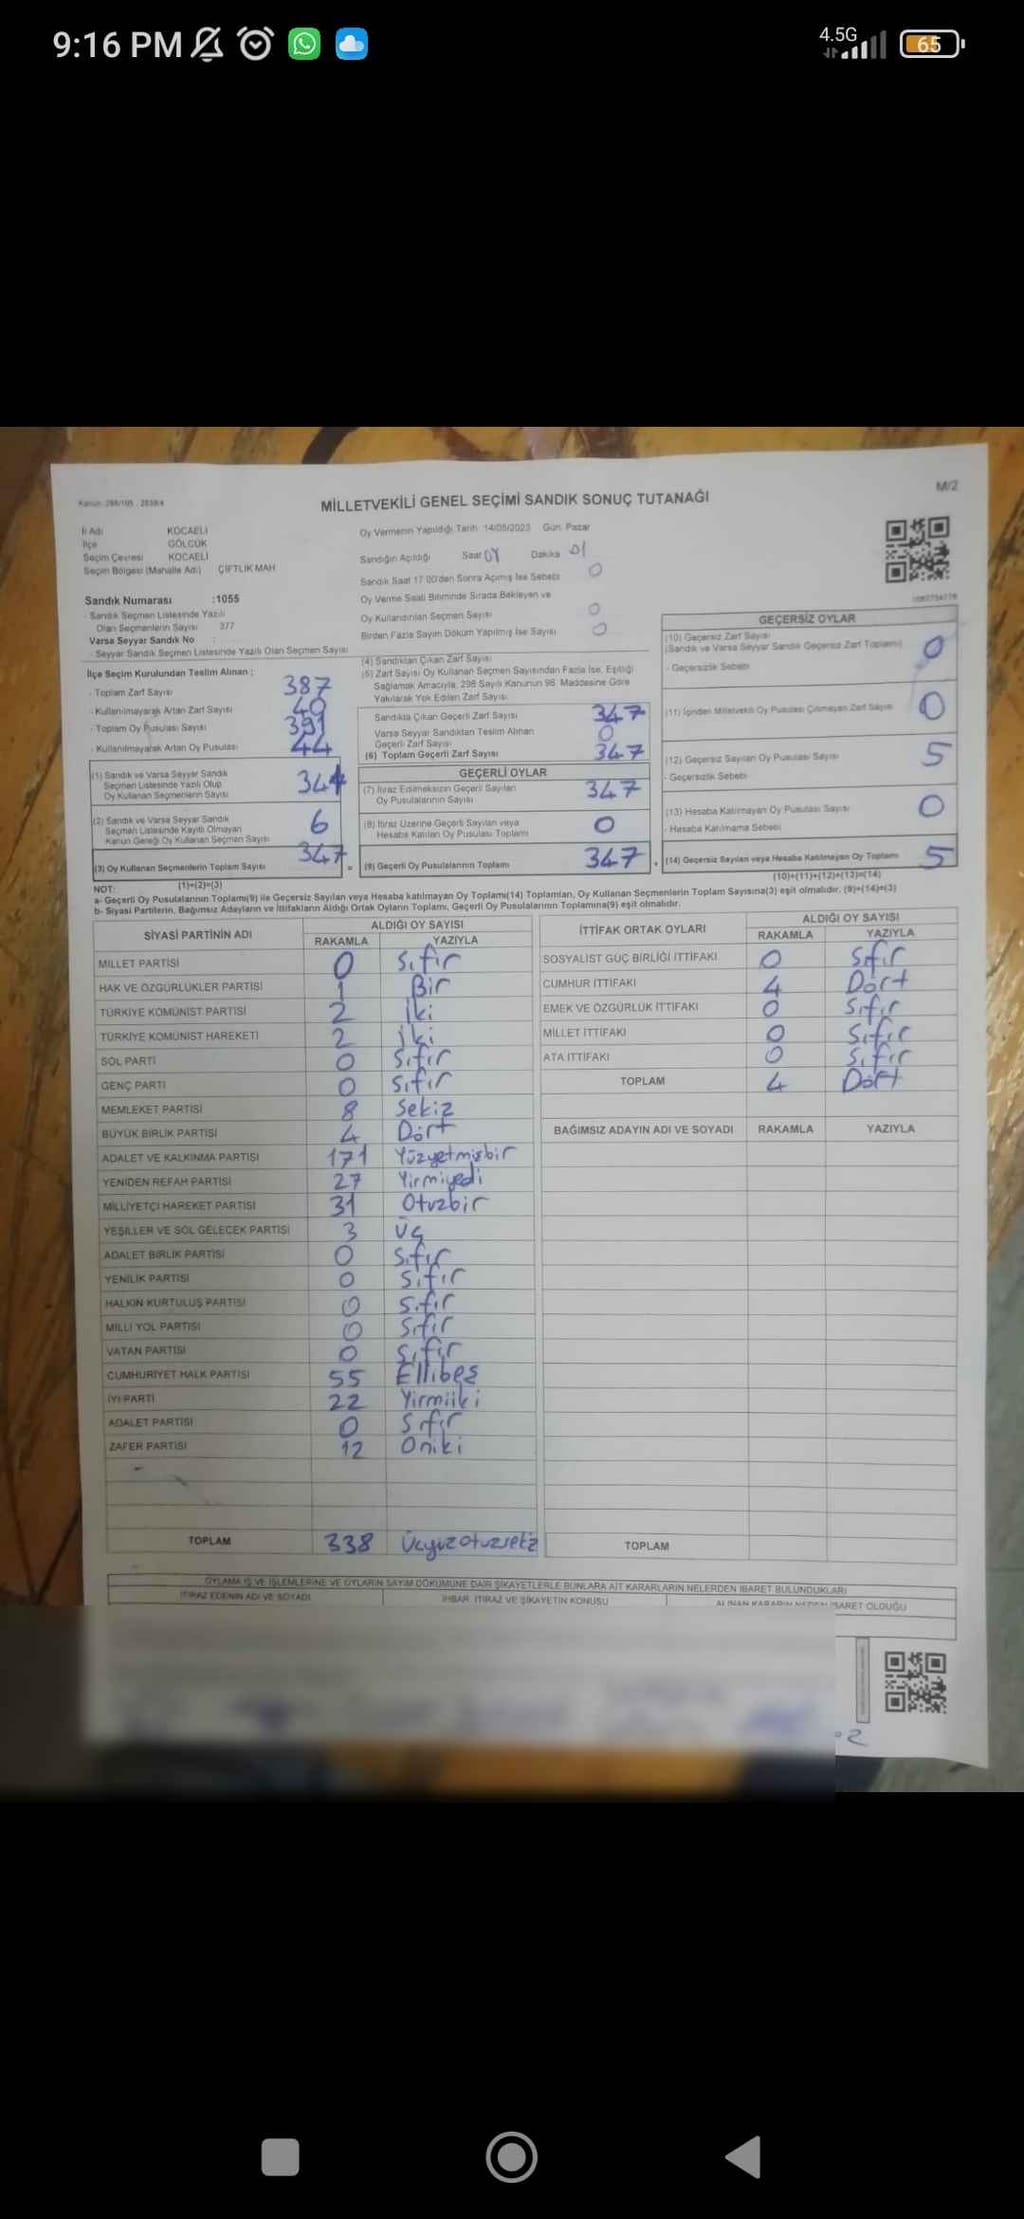 9:16 PM
4.5G
65
M/2
MİLLETVEKİLİ GENEL SEÇİMİ SANDIK SONUÇ TUTANAĞI
İl Adı KOCAELİ
İlçe GÖLCÜK
Seçim Çevresi KOCAELİ
Seçim Bölgesi (Mahalle Adı) ÇİFTLİK MAH
Sandık Numarası :1055
- Sandık Seçmen Listesinde Yazılı
Olan Seçmenlerin Sayısı 377
Varsa Seyyar Sandık No :
- Seyyar Sandık Seçmen Listesinde Yazılı Olan Seçmen Sayısı
Oy Vermenin Yapıldığı Tarih 14/05/2023 Gün: Pazar
Sandığın Açıldığı Saat Dakika 01
Sandık Saat 17:00'den Sonra Açılmış İse Sebebi 0
Oy Verme Saati Bitiminde Sırada Bekleyen ve
Oy Kullandırılan Seçmen Sayısı 0
Birden Fazla Sayım Döküm Yapılmış İse Sayısı 0
İlçe Seçim Kurulundan Teslim Alınan :
- Toplam Zarf Sayısı 387
- Kullanılmayarak Artan Zarf Sayısı 40
- Toplam Oy Pusulası Sayısı 391
- Kullanılmayarak Artan Oy Pusulası 44
(1) Sandık ve Varsa Seyyar Sandık
Seçmen Listesinde Yazılı Olup
Oy Kullanan Seçmenlerin Sayısı
(2) Sandık ve Varsa Seyyar Sandık
Seçmen Listesinde Kayıtlı Olmayan
Kanun Gereği Oy Kullanan Seçmen Sayısı 6
(3) Oy Kullanan Seçmenlerin Toplam Sayısı 347
(1)+(2)=(3)
(4) Sandıktan Çıkan Zarf Sayısı
(5) Zarf Sayısı Oy Kullanan Seçmen Sayısından Fazla İse, Eşitliği
Sağlamak Amacıyla, 298 Sayılı Kanunun 98. Maddesine Göre
Yakılarak Yok Edilen Zarf Sayısı
Sandıkta Çıkan Geçerli Zarf Sayısı 347
Varsa Seyyar Sandıktan Teslim Alınan
Geçerli Zarf Sayısı 0
(6) Toplam Geçerli Zarf Sayısı 347
GEÇERLİ OYLAR
(7) İtiraz Edilmeksizin Geçerli Sayılan
Oy Pusulalarının Sayısı 347
(8) İtiraz Üzerine Geçerli Sayılan veya
Hesaba Katılan Oy Pusulası Toplamı 0
(9) Geçerli Oy Pusulalarının Toplamı 347
GEÇERSİZ OYLAR
(10) Geçersiz Zarf Sayısı
(Sandık ve Varsa Seyyar Sandık Geçersiz Zarf Toplamı) 0
- Geçersizlik Sebebi
(11) İçinden Milletvekili Oy Pusulası Çıkmayan Zarf Sayısı 0
(12) Geçersiz Sayılan Oy Pusulası Sayısı 5
- Geçersizlik Sebebi
(13) Hesaba Katılmayan Oy Pusulası Sayısı 0
- Hesaba Katılmama Sebebi
(14) Geçersiz Sayılan veya Hesaba Katılmayan Oy Toplamı 5
(10)+(11)+(12)+(13)=(14)
NOT:
a- Geçerli Oy Pusulalarının Toplamı(9) ile Geçersiz Sayılan veya Hesaba katılmayan Oy Toplamı(14) Toplamları, Oy Kullanan Seçmenlerin Toplam Sayısına(3) eşit olmalıdır. (9)+(14)=(3)
b- Siyasi Partilerin, Bağımsız Adayların ve İttifakların Aldığı Ortak Oyların Toplamı, Geçerli Oy Pusulalarının Toplamına(9) eşit olmalıdır.
SİYASİ PARTİNİN ADI ALDIĞI OY SAYISI
RAKAMLA YAZIYLA
MİLLET PARTİSİ 0 Sıfır
HAK VE ÖZGÜRLÜKLER PARTİSİ 1 Bir
TÜRKİYE KOMÜNİST PARTİSİ 2 iki
TÜRKİYE KOMÜNİST HAREKETİ 2 iki
SOL PARTİ 0 Sıfır
GENÇ PARTİ 0 Sıfır
MEMLEKET PARTİSİ 8 Sekiz
BÜYÜK BİRLİK PARTİSİ 4 Dört
ADALET VE KALKINMA PARTİSİ 171 Yüzyetmişbir
YENİDEN REFAH PARTİSİ 27 Yirmiyedi
MİLLİYETÇİ HAREKET PARTİSİ 31 Otuzbir
YEŞİLLER VE SOL GELECEK PARTİSİ 3 Üç
ADALET BİRLİK PARTİSİ 0 Sıfır
YENİLİK PARTİSİ 0 Sıfır
HALKIN KURTULUŞ PARTİSİ 0 Sıfır
MİLLİ YOL PARTİSİ 0 Sıfır
VATAN PARTİSİ 0 Sıfır
CUMHURİYET HALK PARTİSİ 55 Ellibeş
İYİ PARTİ 22 Yirmiiki
ADALET PARTİSİ 0 Sıfır
ZAFER PARTİSİ 12 Oniki
TOPLAM 338
İTTİFAK ORTAK OYLARI ALDIĞI OY SAYISI
RAKAMLA YAZIYLA
SOSYALİST GÜÇ BİRLİĞİ İTTİFAKI 0 Sıfır
CUMHUR İTTİFAKI 4 Dört
EMEK VE ÖZGÜRLÜK İTTİFAKI 0 Sıfır
MİLLET İTTİFAKI 0 Sıfır
ATA İTTİFAKI 0 Sıfır
TOPLAM 4 Dört
BAĞIMSIZ ADAYIN ADI VE SOYADI RAKAMLA YAZIYLA
TOPLAM
OYLAMA İŞ VE İŞLEMLERİNE VE OYLARIN SAYIM DÖKÜMÜNE DAİR ŞİKAYETLERLE BUNLARA AİT KARARLARIN NELERDEN İBARET BULUNDUKLARI
İTİRAZ EDENİN ADI VE SOYADI İHBAR, İTİRAZ VE ŞİKAYETİN KONUSU ALINAN KARARIN NEDEN İBARET OLDUĞU